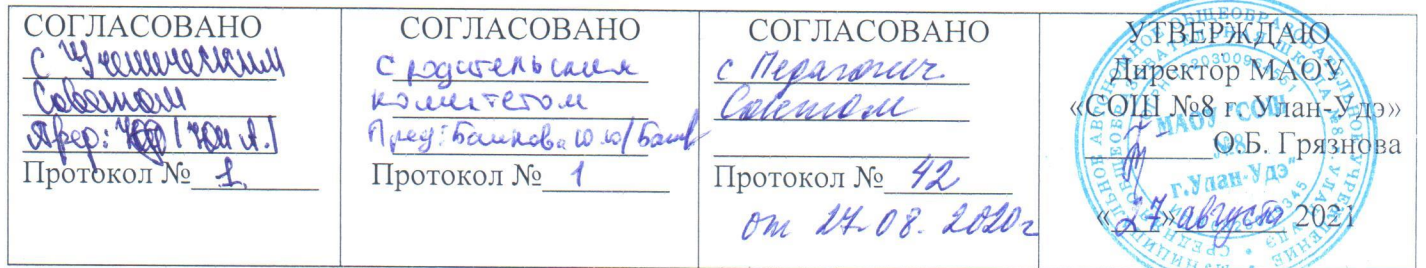 СОГЛАСОВАНО
с Ученическим
Советом
Пред:
Протокол № 1
СОГЛАСОВАНО
с родительским
комитетом
Пред: Башкова Ю.Ю/
Протокол № 1
СОГЛАСОВАНО
с Педагогич.
Советом
Протокол № 42
от 27.08.2020г
УТВЕРЖДАЮ
Директор МАОУ
«СОШ №8 г. Улан-Удэ»
О.Б. Грязнова
«27» августа 2021
МАОУ "СОШ
№8
г.Улан-Удэ"